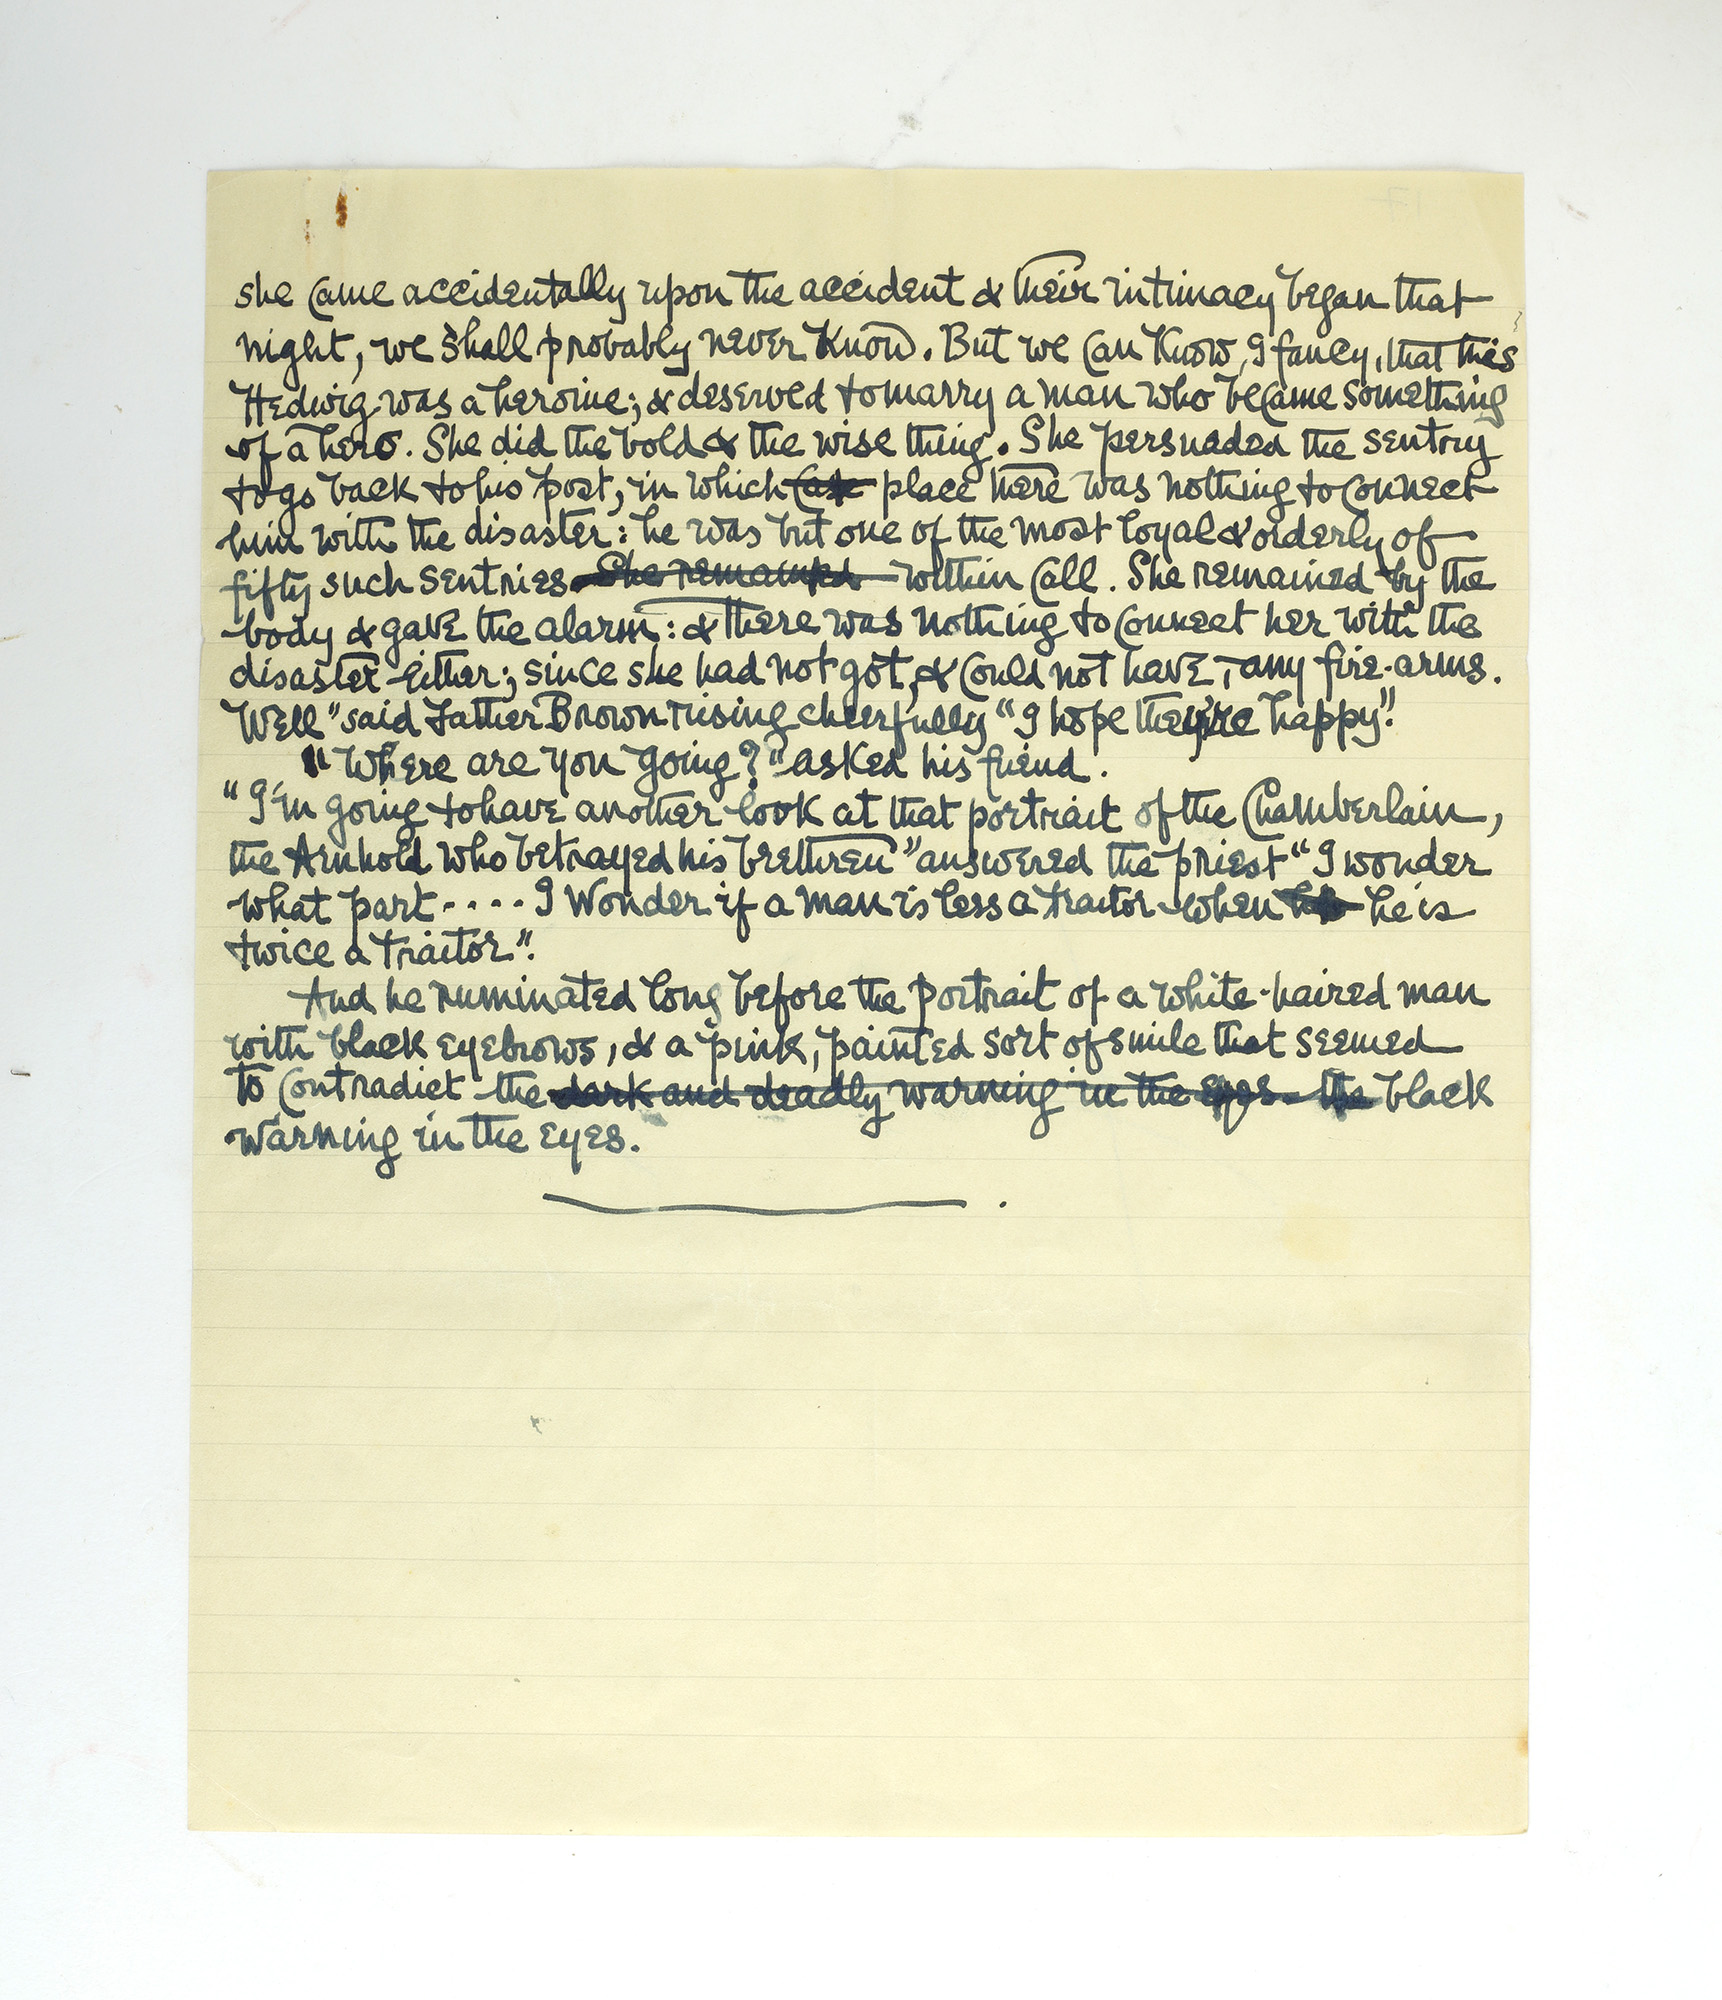 she came accidentally upon the accident & their intimacy began that
night, we shall probably never know. But we can know, I fancy, that this
Hedwig was a heroine; & deserved to marry a man who became something
of a hero. She did the bold & the wise thing. She persuaded the sentry
to go back to his post, in which place there was nothing to connect
him with the disaster: he was but one of the most loyal & orderly of
fifty such sentries She remained within call. She remained by the
body & gave the alarm: & there was nothing to connect her with the
disaster either; since she had not got, & could not have, any fire-arms.
Well" said Father Brown rising cheerfully "I hope they're happy".
"Where are you going?" asked his friend.
"I'm going to have another look at that portrait of the Chamberlain,
the Arnhold who betrayed his brethren" answered the priest "I wonder
what part.... I wonder if a man is less a traitor when he is
twice a traitor".
And he ruminated long before the portrait of a white-haired man
with black eyebrows, & a pink, painted sort of smile that seemed
to contradict the dark and deadly warning in the eyes. the black
warning in the eyes.